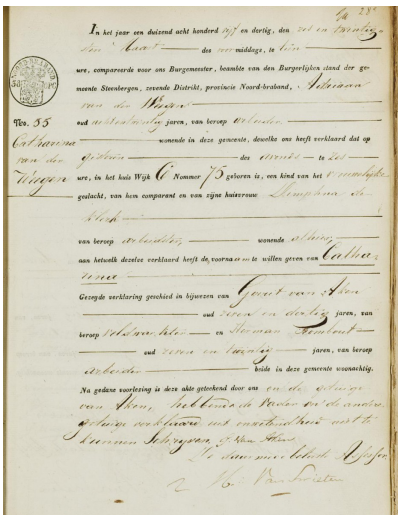 In het jaar een duizend acht honderd vyf en dertig, den zes en twintig-
sten Maart des voormiddags, te tien
ure, compareerde voor ons Burgemeester, beambte van den Burgerlijken stand der ge-
meente Steenbergen, zevende Distrikt, provincie Noord-braband, Adriaan
van der Wegen
oud achtentwintig jaren, van beroep arbeider
wonende in deze gemeente, dewelke ons heeft verklaard dat op
gisteren des avonds te zes
ure, in het huis Wijk C Nommer 75 geboren is, een kind van het vrouwelijke
geslacht, van hem comparant en van zijne huisvrouw Dimphna de
Klerk
van beroep arbeidster, wonende alhier,
aan hetwelk dezelve verklaard heeft de voornaam te willen geven van Catha-
rina
Gezegde verklaring geschied in bijwezen van Govert van Aken
oud zeven en dertig jaren, van
beroep veldwachter en Herman
oud zeven en twintig jaren, van beroep
arbeider beide in deze gemeente woonachtig.
Na gedane voorlezing is deze akte geteekend door ons en de getuige
van Aken, hebbende de vader en de andere
getuige verklaard uit onwetendheid niet te
kunnen schryven. G. van Aken
De daarmee belaste Assessor
H. Van
No. 55
Catharina
van der
Wegen